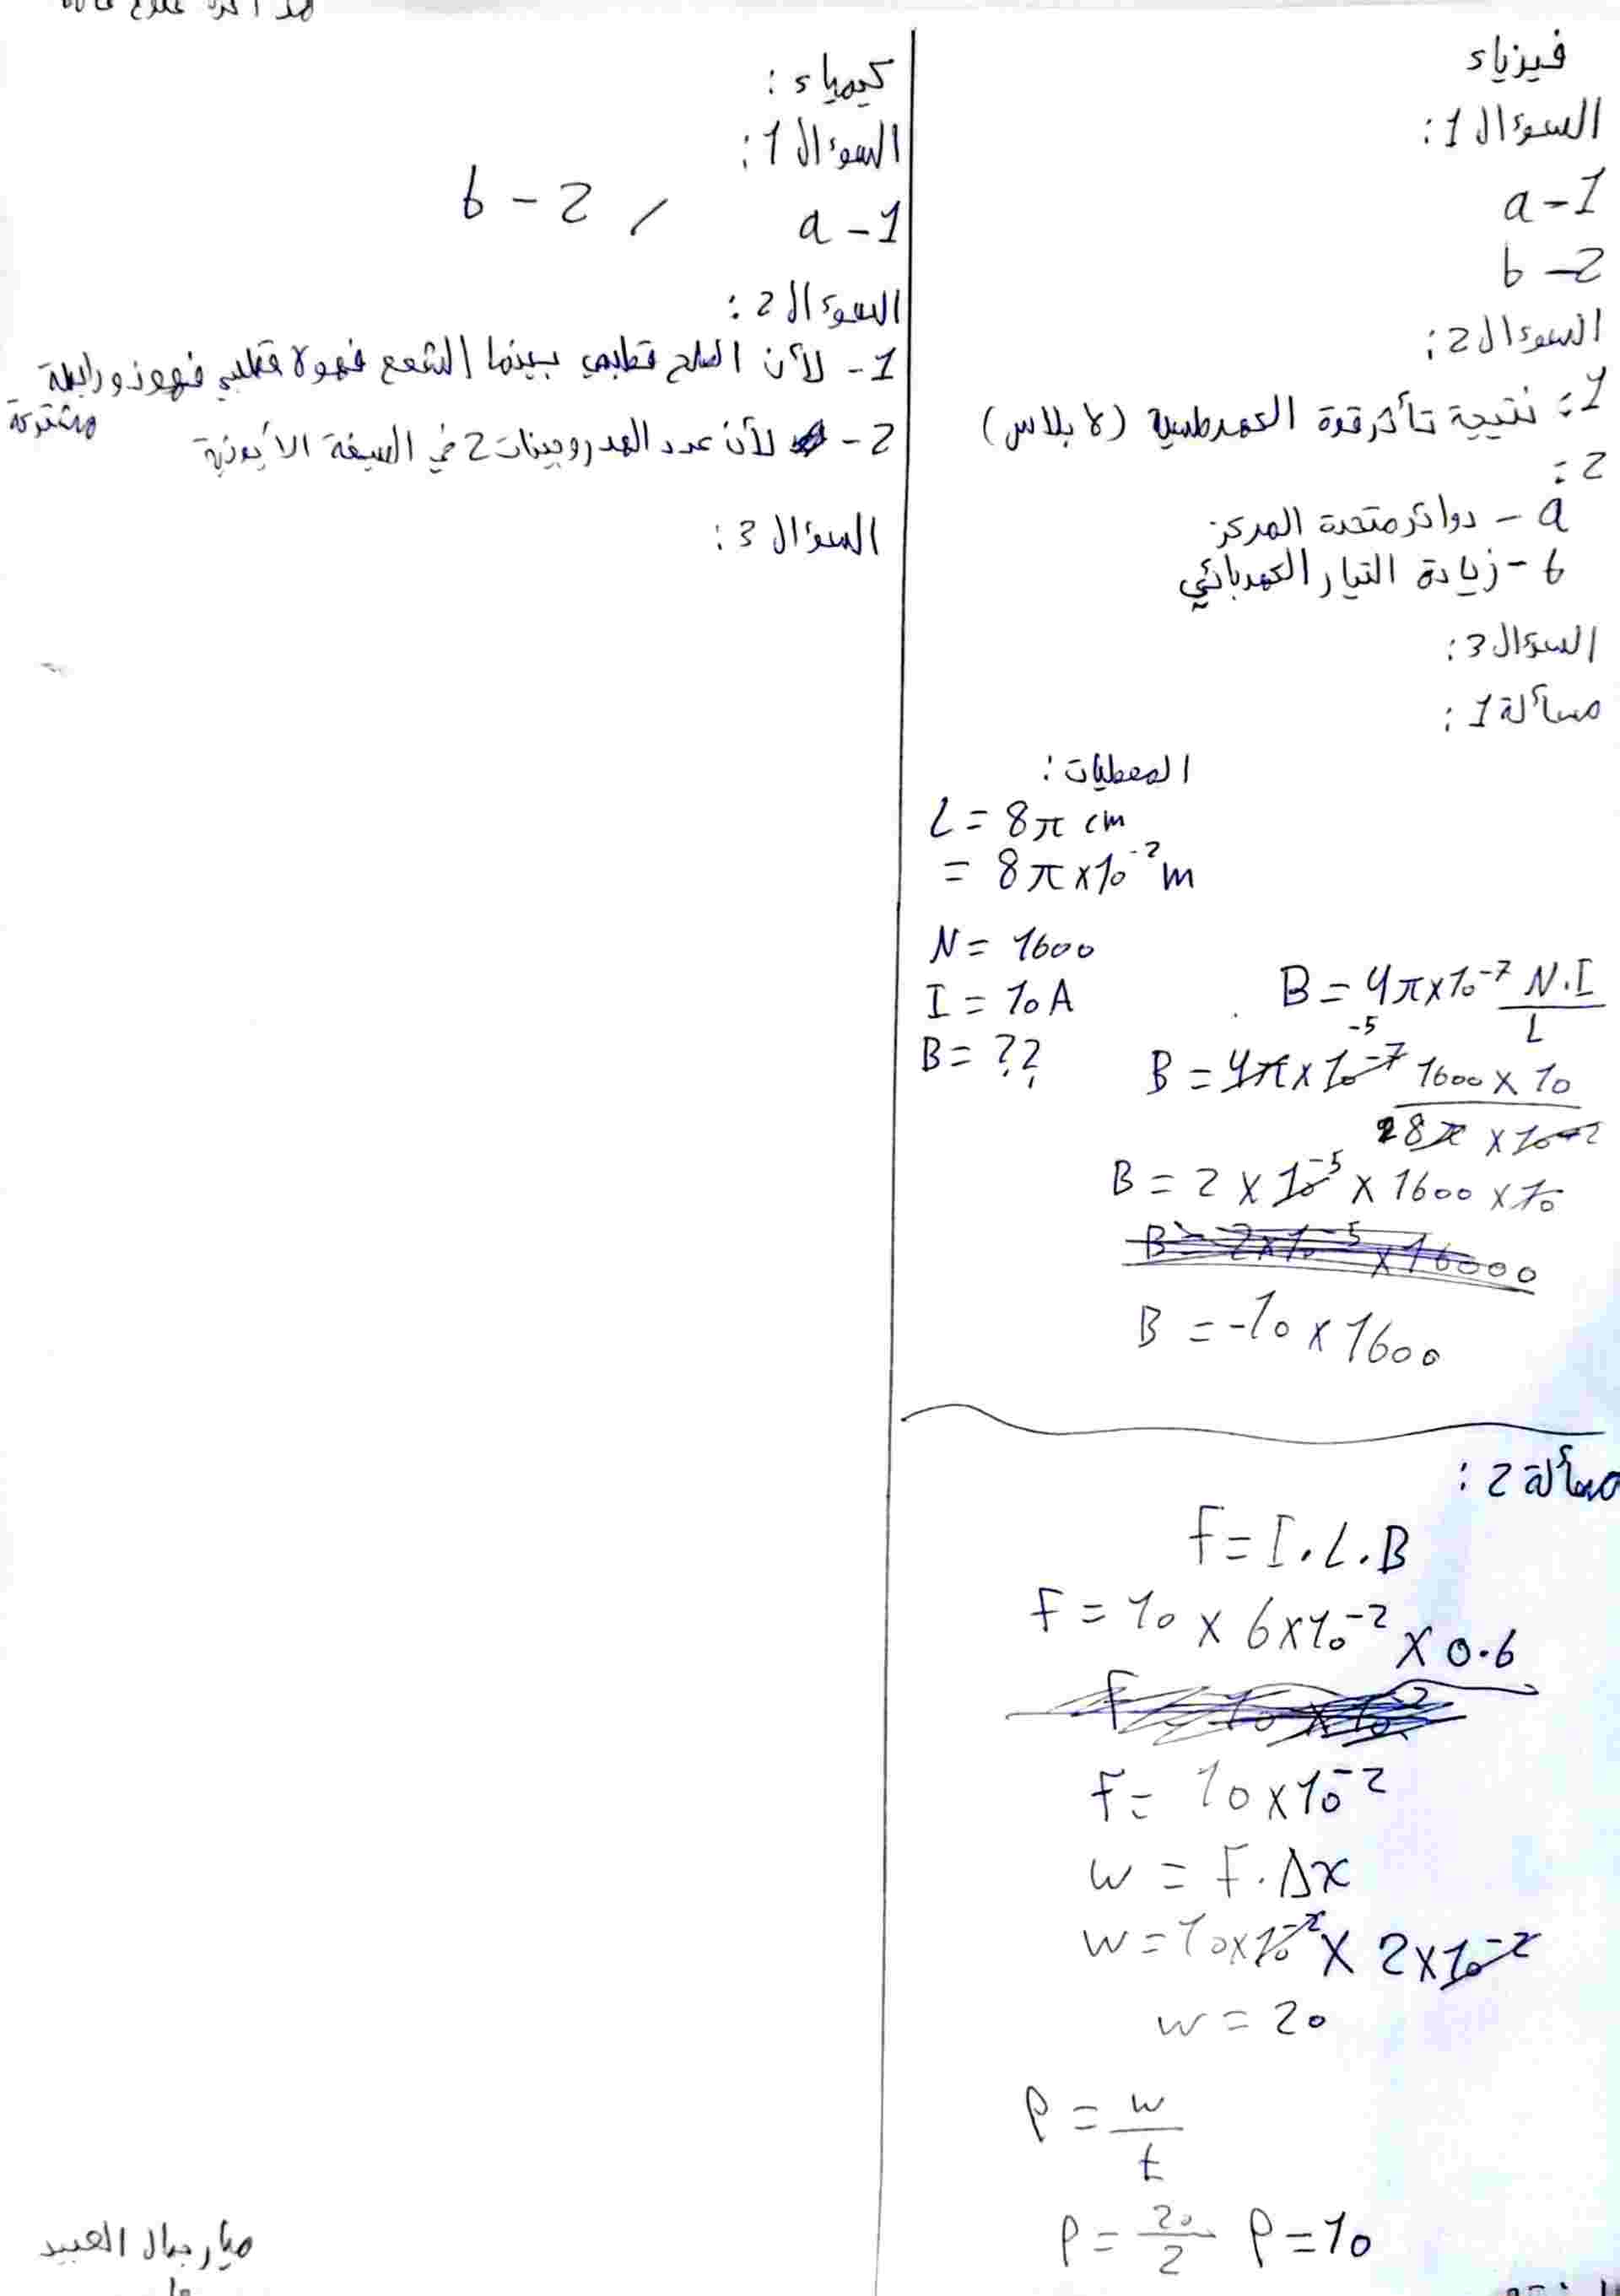 فيزياء
السؤال 1:
a - 1
b - 2
السؤال 2:
1: نتيجة تأثر قوة الكهرطسية (لابلاس)
2:
a - دوائر متحدة المركز
b - زيادة التيار الكهربائي
السؤال 3:
مسألة 1:
المعطيات:
L = 8π cm
= 8π×10⁻² m
N = 1600
I = 10 A
B = ??
B = 4π×10⁻⁷ N.I / L
B = 4π×10⁻⁷ 1600 × 10 / 8π × 10⁻²
-5
2
B = 2 × 10⁻⁵ × 1600 × 10
B = 2×10⁻⁵ × 16000
B = -10 × 1600
مسألة 2:
F = I.L.B
F = 10 × 6×10⁻² × 0.6
F = 10×10⁻²
w = F.Δx
w = 10×10⁻² × 2×10⁻²
w = 20
P = w / t
P = 20 / 2 P = 10
كيمياء:
السؤال 1:
a - 1 / 2 - b
السؤال 2:
1- لأن الملح قطبي بينما الشمع فهو لا قطبي فهو ذو رابطة
مشتركة
2- لأن عدد الهدروجينات 2 في الصيغة الأيونية
السؤال 3:
العبيد